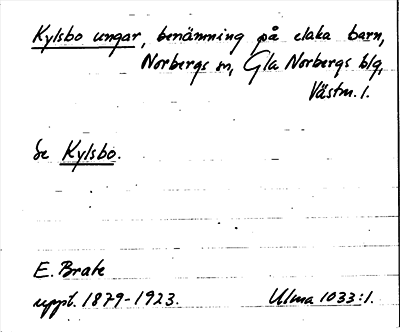 Kylsbo ungar, benämning på elaka barn,
Norbergs sn, Gla Norbergs blg,
Västm. l.
Se Kylsbo.
E. Brate
uppt. 1879-1923.
Ulma 1033:1.